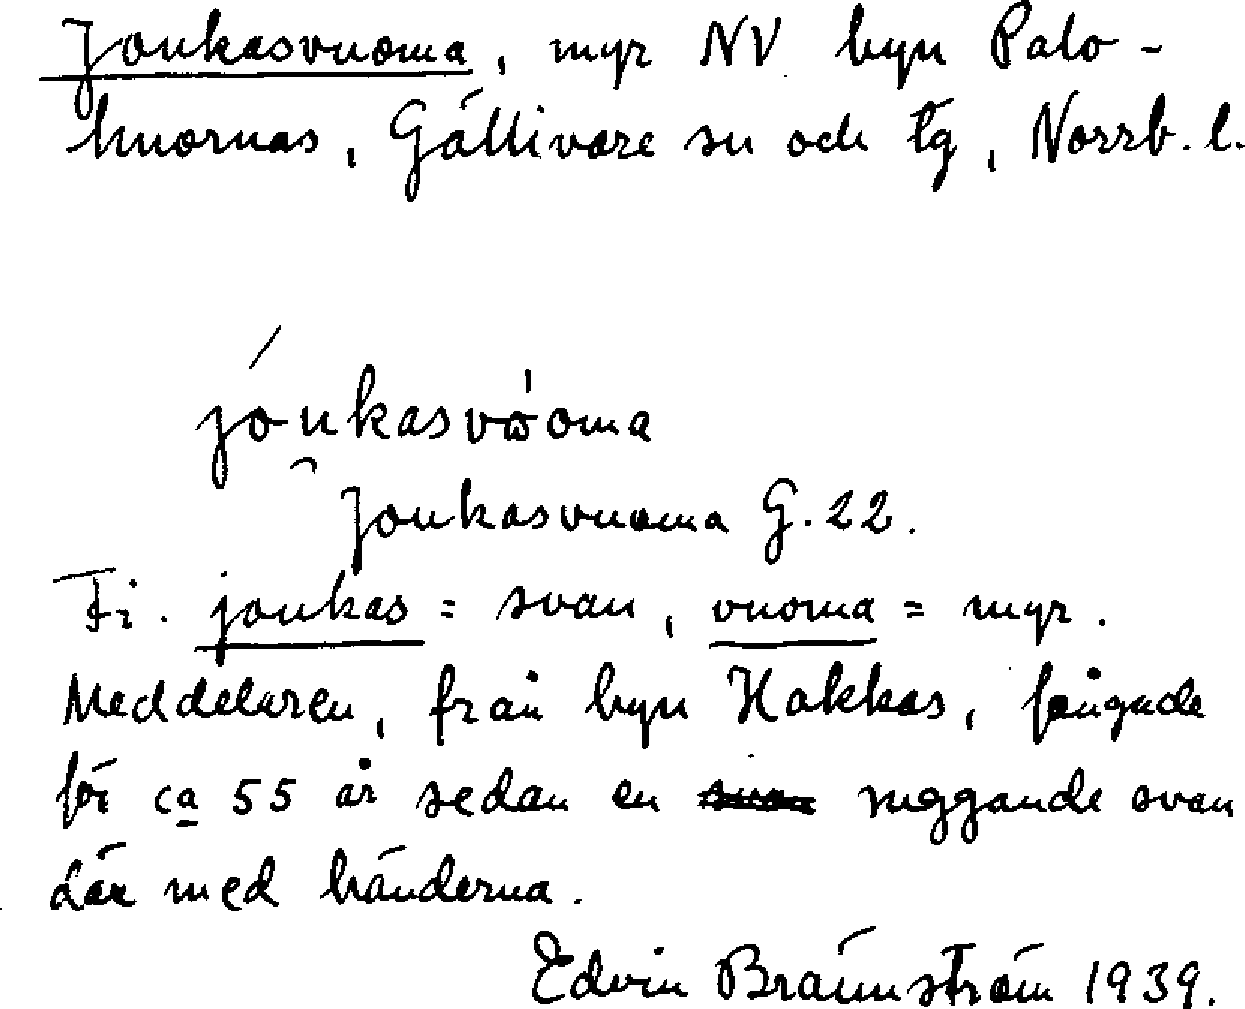 Joukasvuoma, myr NV byn Palo-
huornas, Gällivare sn och tg, Norrb. l.
jóu̯kasvω̍oma
Joukasvuoma G. 22.
Fi. joukas = svan, vuoma = myr.
Meddelaren, från byn Hakkas, fångade
för ca 55 år sedan en svan ruggande svan
där med händerna.
Edvin Brännström 1939.